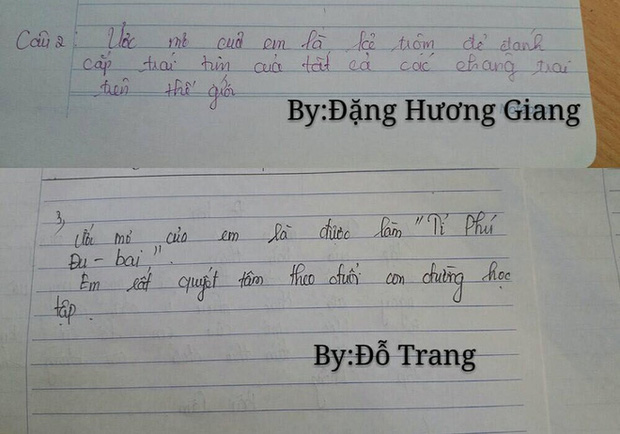 Câu 2: Ước mơ của em là kẻ trộm để đánh
cắp trái tim của tất cả các chàng trai
trên thế giới
By:Đặng Hương Giang
3,
Ước mơ của em là được làm "Tỉ Phú
Đu - bai".
Em rất quyết tâm theo đuổi con đường học
tập.
By:Đỗ Trang